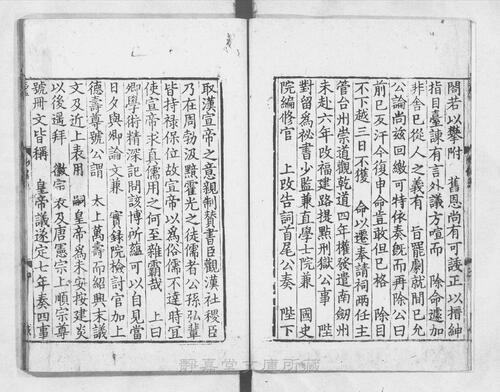 閤若以攀附　舊恩尚有可諉正以搢紳
指目臺諫有言外議方喧而　除命遽加
非舍已從人之義有　旨罷劇就間已允
公論尚兹回繳可特依奏旣而再除公曰
前已反汗今復申命豈敢但已格　除目
不下越三日不獲　命以遷奏請祠兩任主
管台州崇道觀乾道四年權發遣南劒州
未赴六年改福建路提點刑獄公事　陛
對留爲祕書少監兼直學士院兼　國史
院編修官　上改告詞首尾公奏　陛下
取漢宣帝之意親制賛書臣觀漢社稷臣
乃在周勃汲黯霍光之徒儒者公孫弘輩
皆持祿保位故宣帝以爲俗儒不達時宜
使宣帝求真儒用之何至雜霸哉　上曰
卿學術精深記問該博所蘊可以自見當
日夕與卿論文兼　實錄院檢討官加上
德壽尊號公謂　太上萬壽而紹興末議
文及近上表用　嗣皇帝爲未安按建炎
以後遥拜　徽宗表及唐憲宗上順宗尊
號冊文皆稱　皇帝議遂定七年奏四事
靜嘉堂文庫所藏